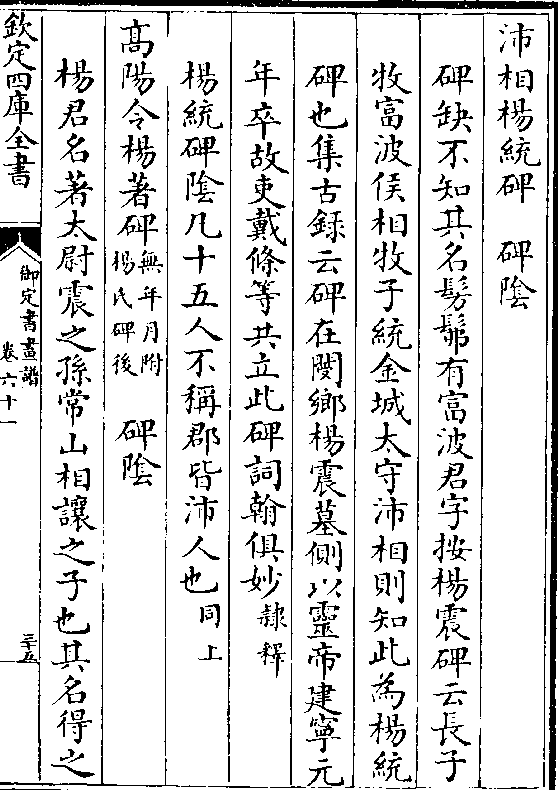 沛相楊統碑　碑隂
碑缺不知其名髣髴有富波君字按楊震碑云長子
牧富波侯相牧子統金城太守沛相則知此為楊統
碑也集古録云碑在閿鄉楊震墓側以靈帝建寧元
年卒故吏戴條等共立此碑詞翰俱妙隸釋
楊統碑隂凡十五人不稱郡皆沛人也同上
髙陽令楊著碑無年月附楊氏碑後　碑隂
楊君名著太尉震之孫常山相讓之子也其名得之
欽定四庫全書
御定書畫譜
卷六十一
三十五